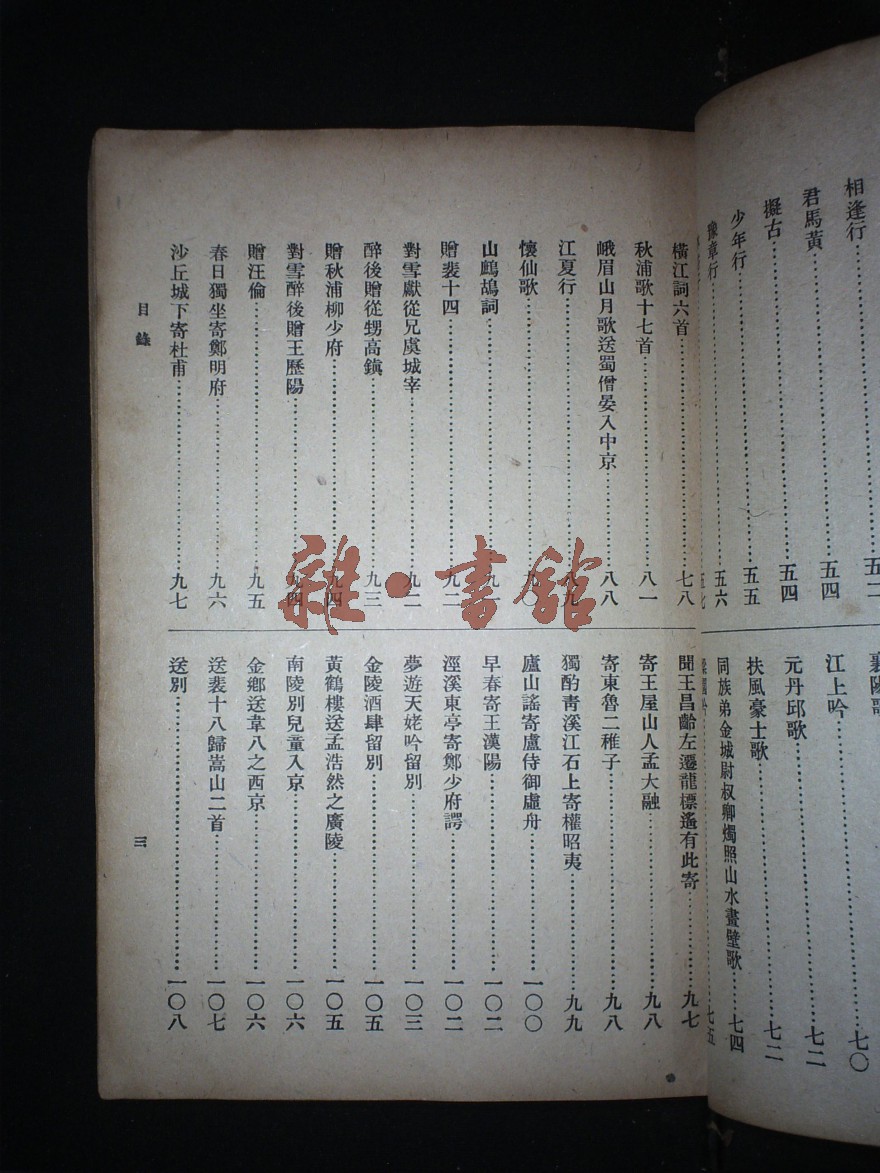 相逢行……五二
君馬黃……五四
擬古……五四
少年行……五五
豫章行……五六
五七
襄陽歌
江上吟……七〇
元丹邱歌……七二
扶風豪士歌……七二
同族弟金城尉叔卿燭照山水畫壁歌……七四
七五
橫江詞六首……七八
秋浦歌十七首……八一
峨眉山月歌送蜀僧晏入中京……八八
江夏行……八九
懷仙歌……九〇
山鷓鴣詞……九一
贈裴十四……九二
對雪獻從兄虞城宰……九二
醉後贈從甥高鎮……九三
贈秋浦柳少府……九四
對雪醉後贈王歷陽……九四
贈汪倫……九五
春日獨坐寄鄭明府……九六
沙丘城下寄杜甫……九七
聞王昌齡左遷龍標遙有此寄……九七
寄王屋山人孟大融……九八
寄東魯二稚子……九八
獨酌青溪江石上寄權昭夷……九九
廬山謠寄盧侍御虛舟……一〇〇
早春寄王漢陽……一〇二
涇溪東亭寄鄭少府諤……一〇二
夢遊天姥吟留別……一〇三
金陵酒肆留別……一〇五
黃鶴樓送孟浩然之廣陵……一〇五
南陵別兒童入京……一〇六
金鄉送韋八之西京……一〇六
送裴十八歸嵩山二首……一〇七
送別……一〇八
目錄
三
雜·書館